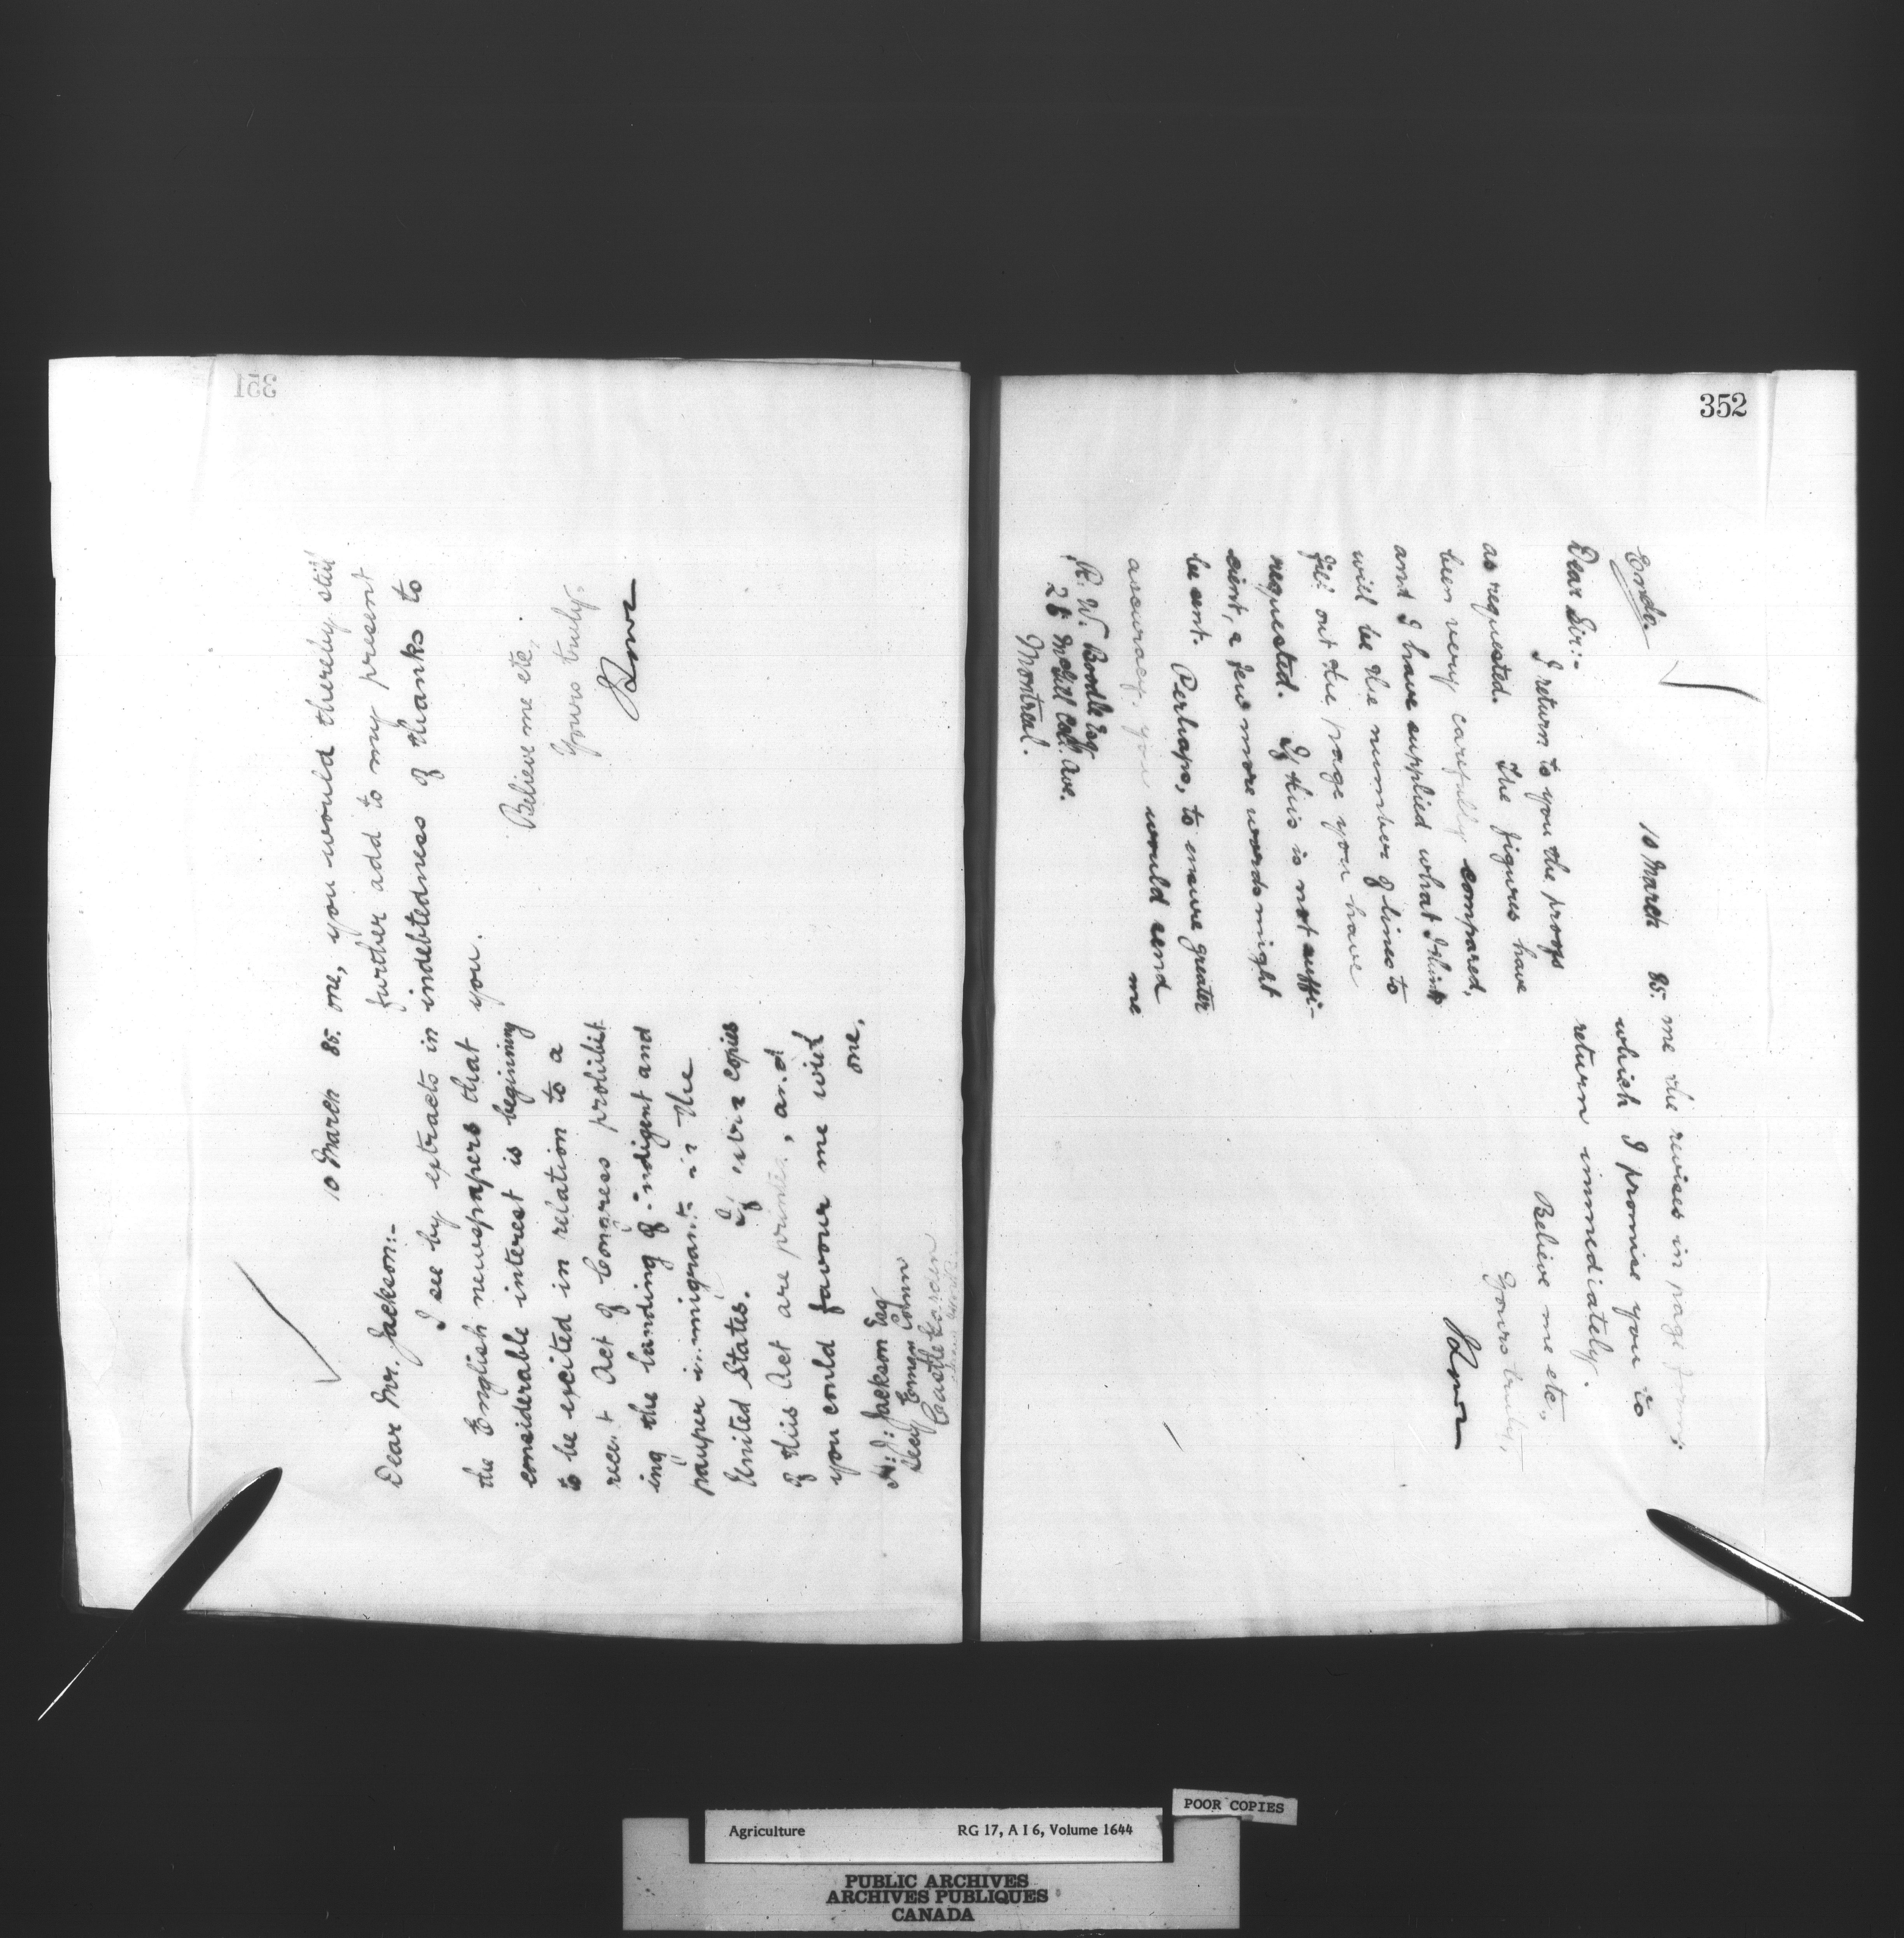 351
10 March 85.
Dear Mr. Jackson:-
I see by extracts in
the English newspapers that
considerable interest is begining
to be excited in relation to a
recent Act of Congress prohibit
ing the landing of indigent and
pauper immigrants in the
United States. If extra copies
of this Act are printed, and
you could favour me with
one,
H. J. Jackson Esq
Secy Emgn Comn
Castle Garden
one, you would thereby still
further add to my present
indebtedness of thanks to
you.
Believe me etc,
Yours truly,
352
Endo.
10 March 85.
Dear Sir:-
I return to you the proofs
as requested. The figures have
been very carefully compared,
and I have supplied what I think
will be the number of lines to
fill out the page you have
requested. If this is not suffi-
cient, a few more words might
be sent. Perhaps, to ensure greater
accuracy, you would send
me
R. W. Boodle Esq
26 McGill Col. Ave.
Montreal.
me the revises in page form:
which I promise you to
return immediately.
Believe me etc,
Yours truly,
POOR COPIES
Agriculture RG 17, A I 6, Volume 1644
PUBLIC ARCHIVES
ARCHIVES PUBLIQUES
CANADA